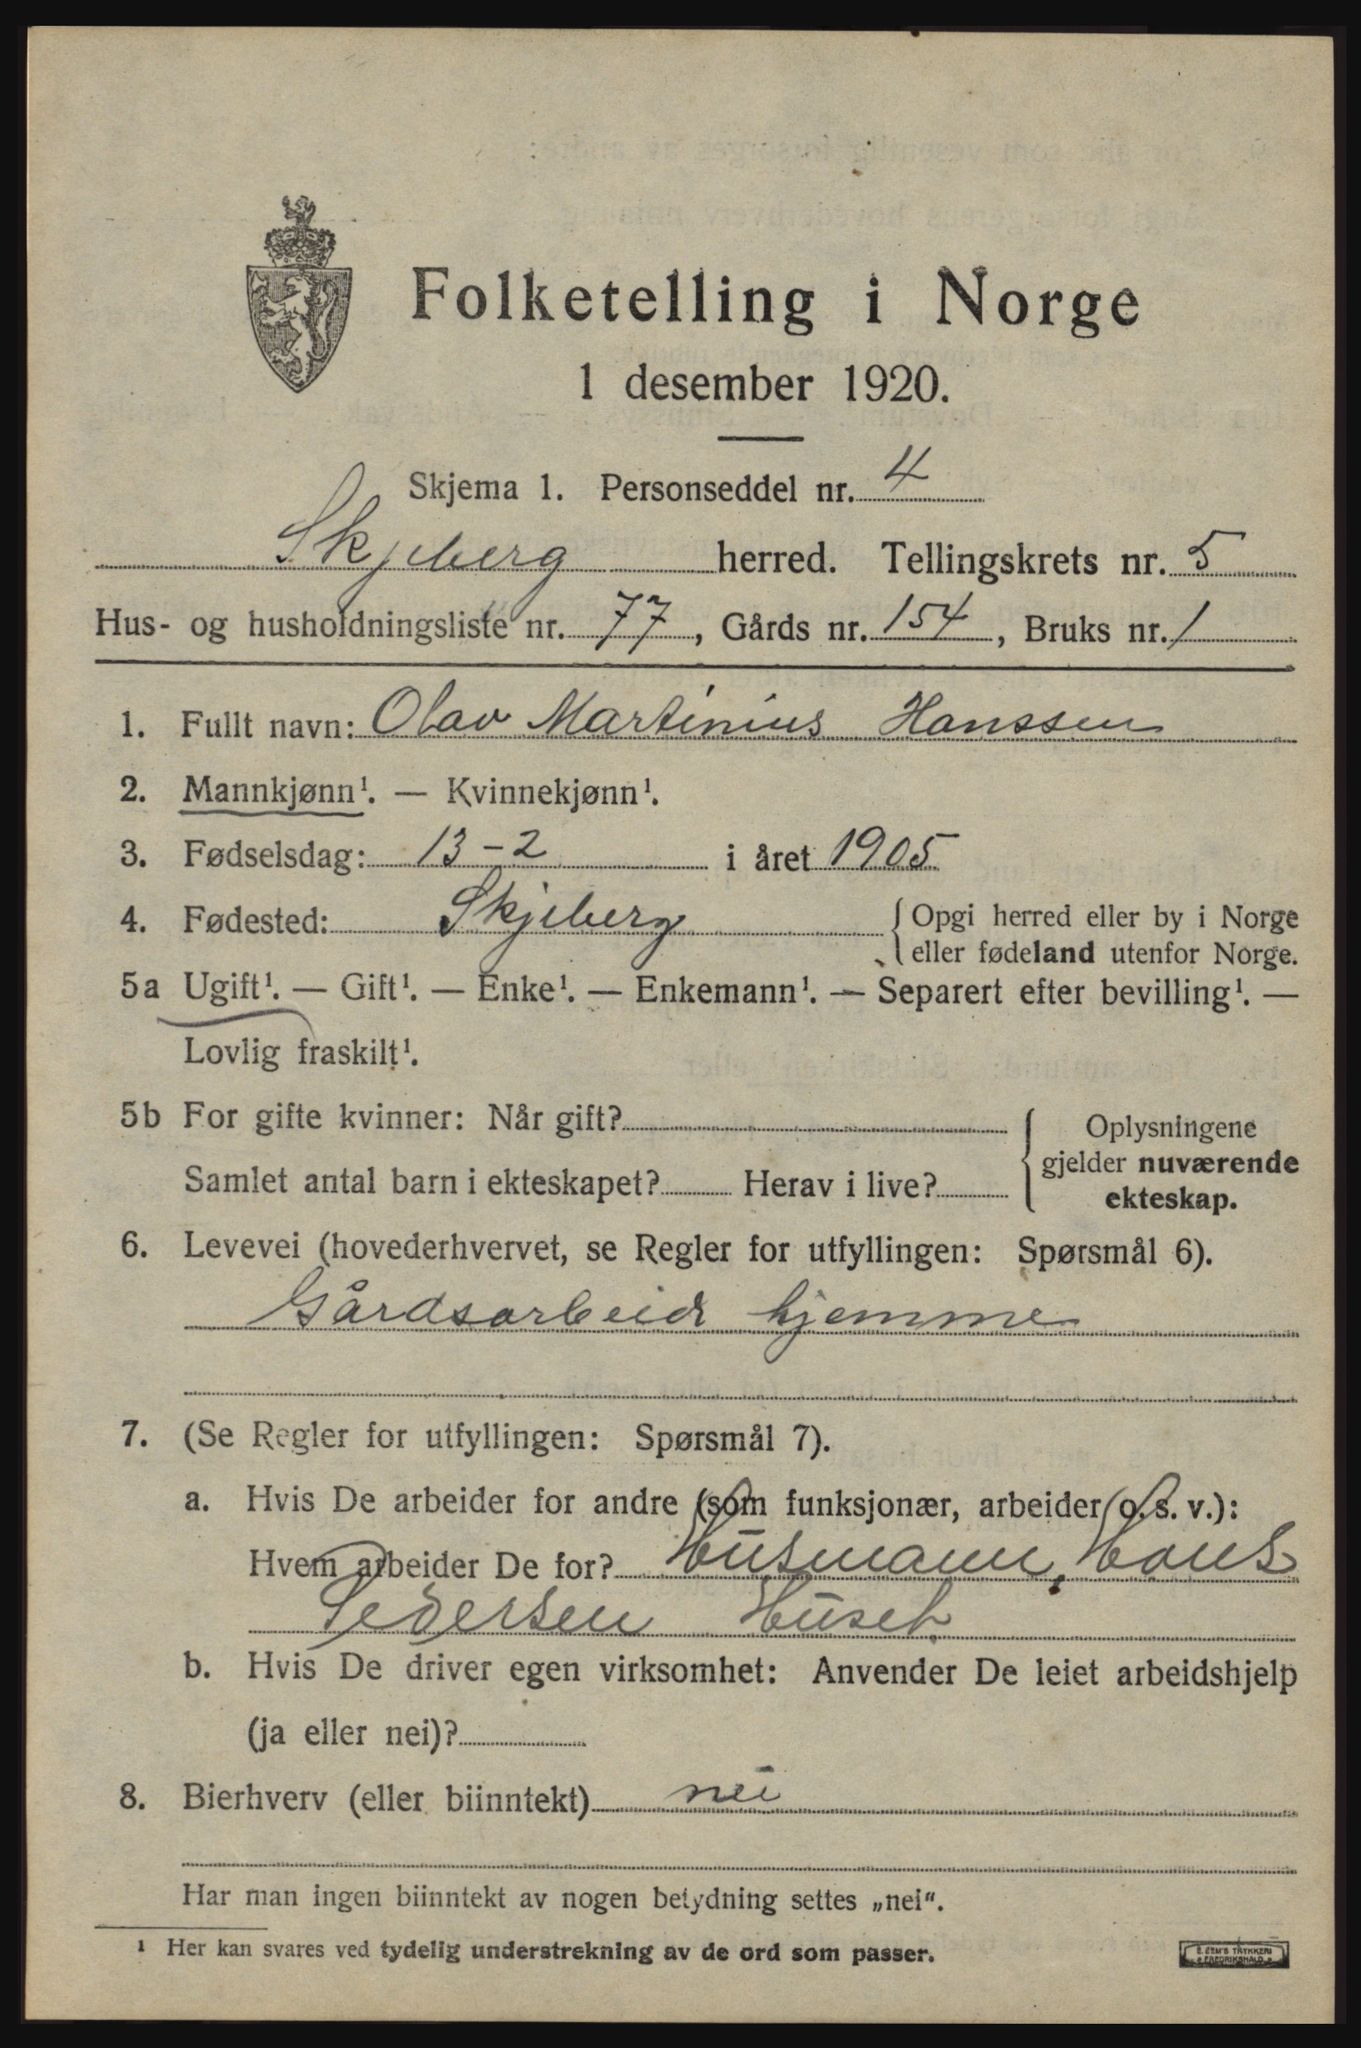 Folketelling i Norge
1 desember 1920.
Skjema 1. Personseddel nr. 4
Skjeberg herred. Tellingskrets nr. 5
Hus- og husholdningsliste nr. 77, Gårds nr. 154, Bruks nr. 1
1. Fullt navn: Olav Martinius Hanssen
2. Mannkjønn¹. — Kvinnekjønn¹.
3. Fødselsdag: 13-2 i året 1905
4. Fødested: Skjeberg { Opgi herred eller by i Norge
eller fødeland utenfor Norge.
5a Ugift¹. — Gift¹. — Enke¹. — Enkemann¹. — Separert efter bevilling¹. —
Lovlig fraskilt¹.
5b For gifte kvinner: Når gift? { Oplysningene
gjelder nuværende
Samlet antal barn i ekteskapet? Herav i live?
ekteskap.
6. Levevei (hovederhvervet, se Regler for utfyllingen: Spørsmål 6).
Gårdsarbeide hjemme
7. (Se Regler for utfyllingen: Spørsmål 7).
a. Hvis De arbeider for andre (som funksjonær, arbeider o. s. v.):
Hvem arbeider De for? Husmann, Hans
Pedersen Huset
b. Hvis De driver egen virksomhet: Anvender De leiet arbeidshjelp
(ja eller nei)?
8. Bierhverv (eller biinntekt) nei
Har man ingen biinntekt av nogen betydning settes „nei“.
¹ Her kan svares ved tydelig understrekning av de ord som passer.
E. SEM'S TRYKKERI
FREDRIKSHALD